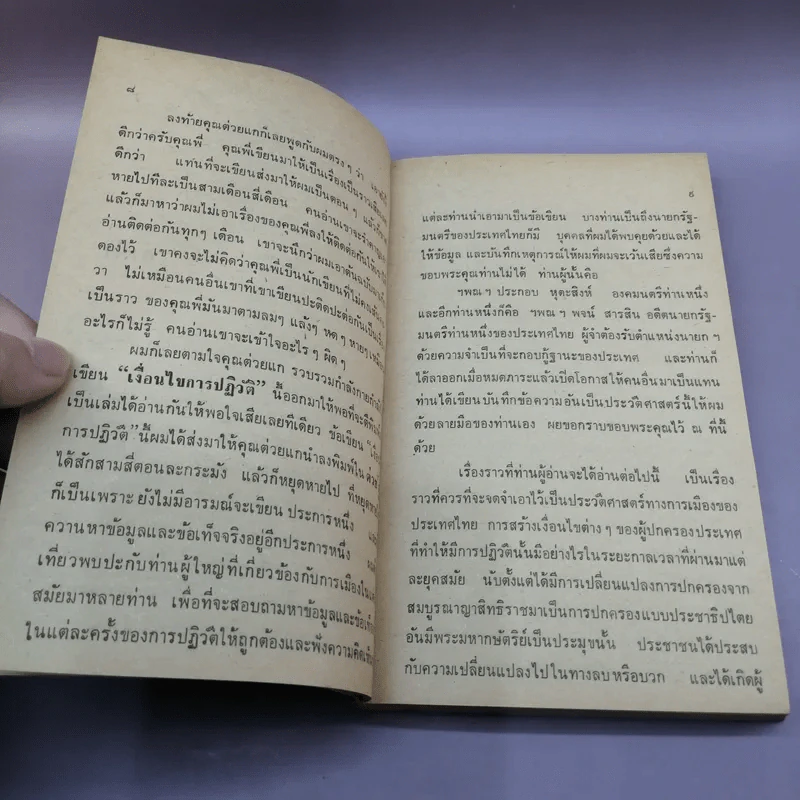 ๘
ลงท้ายคุณต่วยแกก็เลยพูดกับผมตรงๆ ว่า
ดีกว่าครับคุณพี่ คุณพี่เขียนมาให้เป็นเรื่องเป็นราวเสีย
ดีกว่า แทนที่จะเขียนส่งมาให้ผมเป็นตอนๆ แล้วก็
หายไปทีละเป็นสามเดือนสี่เดือน คนอ่านเขาจะรำคาญ
แล้วก็มาหาว่าผมไม่เอาเรื่องของคุณพี่ลงให้ติดต่อกันให้
อ่านติดต่อกันทุกๆ เดือน เขาจะนึกว่าผมเอาต้นฉบับ
ดองไว้ เขาคงจะไม่คิดว่าคุณพี่เป็นนักเขียนที่ไม่
วา ไม่เหมือนคนอื่นเขาที่เขาเขียนปะติดปะต่อกันเป็น
เป็นราว ของคุณพี่มันมาตามลมๆ แล้งๆ หดๆ หายๆ
อะไรก็ไม่รู้ คนอ่านเขาจะเข้าใจอะไรๆ ผิดๆ
ผมก็เลยตามใจคุณต่วยแก รวบรวมกำลังกาย
เขียน “เงื่อนไขการปฏิวัติ” นี้ออกมาให้พอที่จะ
เป็นเล่มได้อ่านกันให้พอใจเสียเลยทีเดียว ข้อเขียน
การปฏิวัติ” นี้ผมได้ส่งมาให้คุณต่วยแกนำลงพิมพ์ใน
ได้สักสามสี่ตอนละกระมัง แล้วก็หยุดหายไป ที่หยุด
ก็เป็นเพราะ ยังไม่มีอารมณ์จะเขียน ประการหนึ่ง
ควานหาข้อมูลและข้อเท็จจริงอยู่อีกประการหนึ่ง
เที่ยวพบปะกับท่านผู้ใหญ่ที่เกี่ยวข้องกับการเมืองใน
สมัยมาหลายท่าน เพื่อที่จะสอบถามหาข้อมูลและ
ในแต่ละครั้งของการปฏิวัติให้ถูกต้องและฟังความคิด
๙
แต่ละท่านนำเอามาเป็นข้อเขียน บางท่านเป็นถึงนายกรัฐ-
มนตรีของประเทศไทยก็มี บุคคลที่ผมได้พบคุยด้วยและได้
ให้ข้อมูล และบันทึกเหตุการณ์ให้ผมที่ผมจะเว้นเสียซึ่งความ
ขอบพระคุณท่านไม่ได้ ท่านผู้นั้นคือ
ฯพณฯ ประกอบ หุตะสิงห์ องคมนตรีท่านหนึ่ง
และอีกท่านหนึ่งก็คือ ฯพณฯ พจน์ สารสิน อดีตนายกรัฐ-
มนตรีท่านหนึ่งของประเทศไทย ผู้จำต้องรับตำแหน่งนายก ฯ
ด้วยความจำเป็นที่จะกอบกู้ฐานะของประเทศ และท่านก็
ได้ลาออกเมื่อหมดภาระแล้วเปิดโอกาสให้คนอื่นมาเป็นแทน
ท่านได้เขียนบันทึกข้อความอันเป็นประวัติศาสตร์นี้ให้ผม
ด้วยลายมือของท่านเอง ผมขอกราบขอบพระคุณไว้ ณ ที่นี้
ด้วย
เรื่องราวที่ท่านผู้อ่านจะได้อ่านต่อไปนี้ เป็นเรื่อง
ราวที่ควรที่จะจดจำเอาไว้เป็นประวัติศาสตร์ทางการเมืองของ
ประเทศไทย การสร้างเงื่อนไขต่างๆ ของผู้ปกครองประเทศ
ที่ทำให้มีการปฏิวัตินั้นมีอย่างไรในระยะกาลเวลาที่ผ่านมาแต่
ละยุคสมัย นับตั้งแต่ได้มีการเปลี่ยนแปลงการปกครองจาก
สมบูรณาญาสิทธิราชมาเป็นการปกครองแบบประชาธิปไตย
อันมีพระมหากษัตริย์เป็นประมุขนั้น ประชาชนได้ประสบ
กับความเปลี่ยนแปลงไปในทางลบหรือบวก และได้เกิดผู้